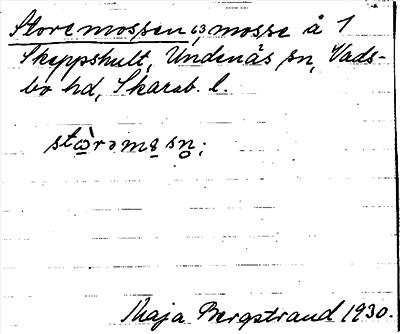 Storemossen 63, mosse å 1
Skeppshult, Undenäs sn, Vads-
bo hd, Skarab. l.
Maja Bergstrand 1930.